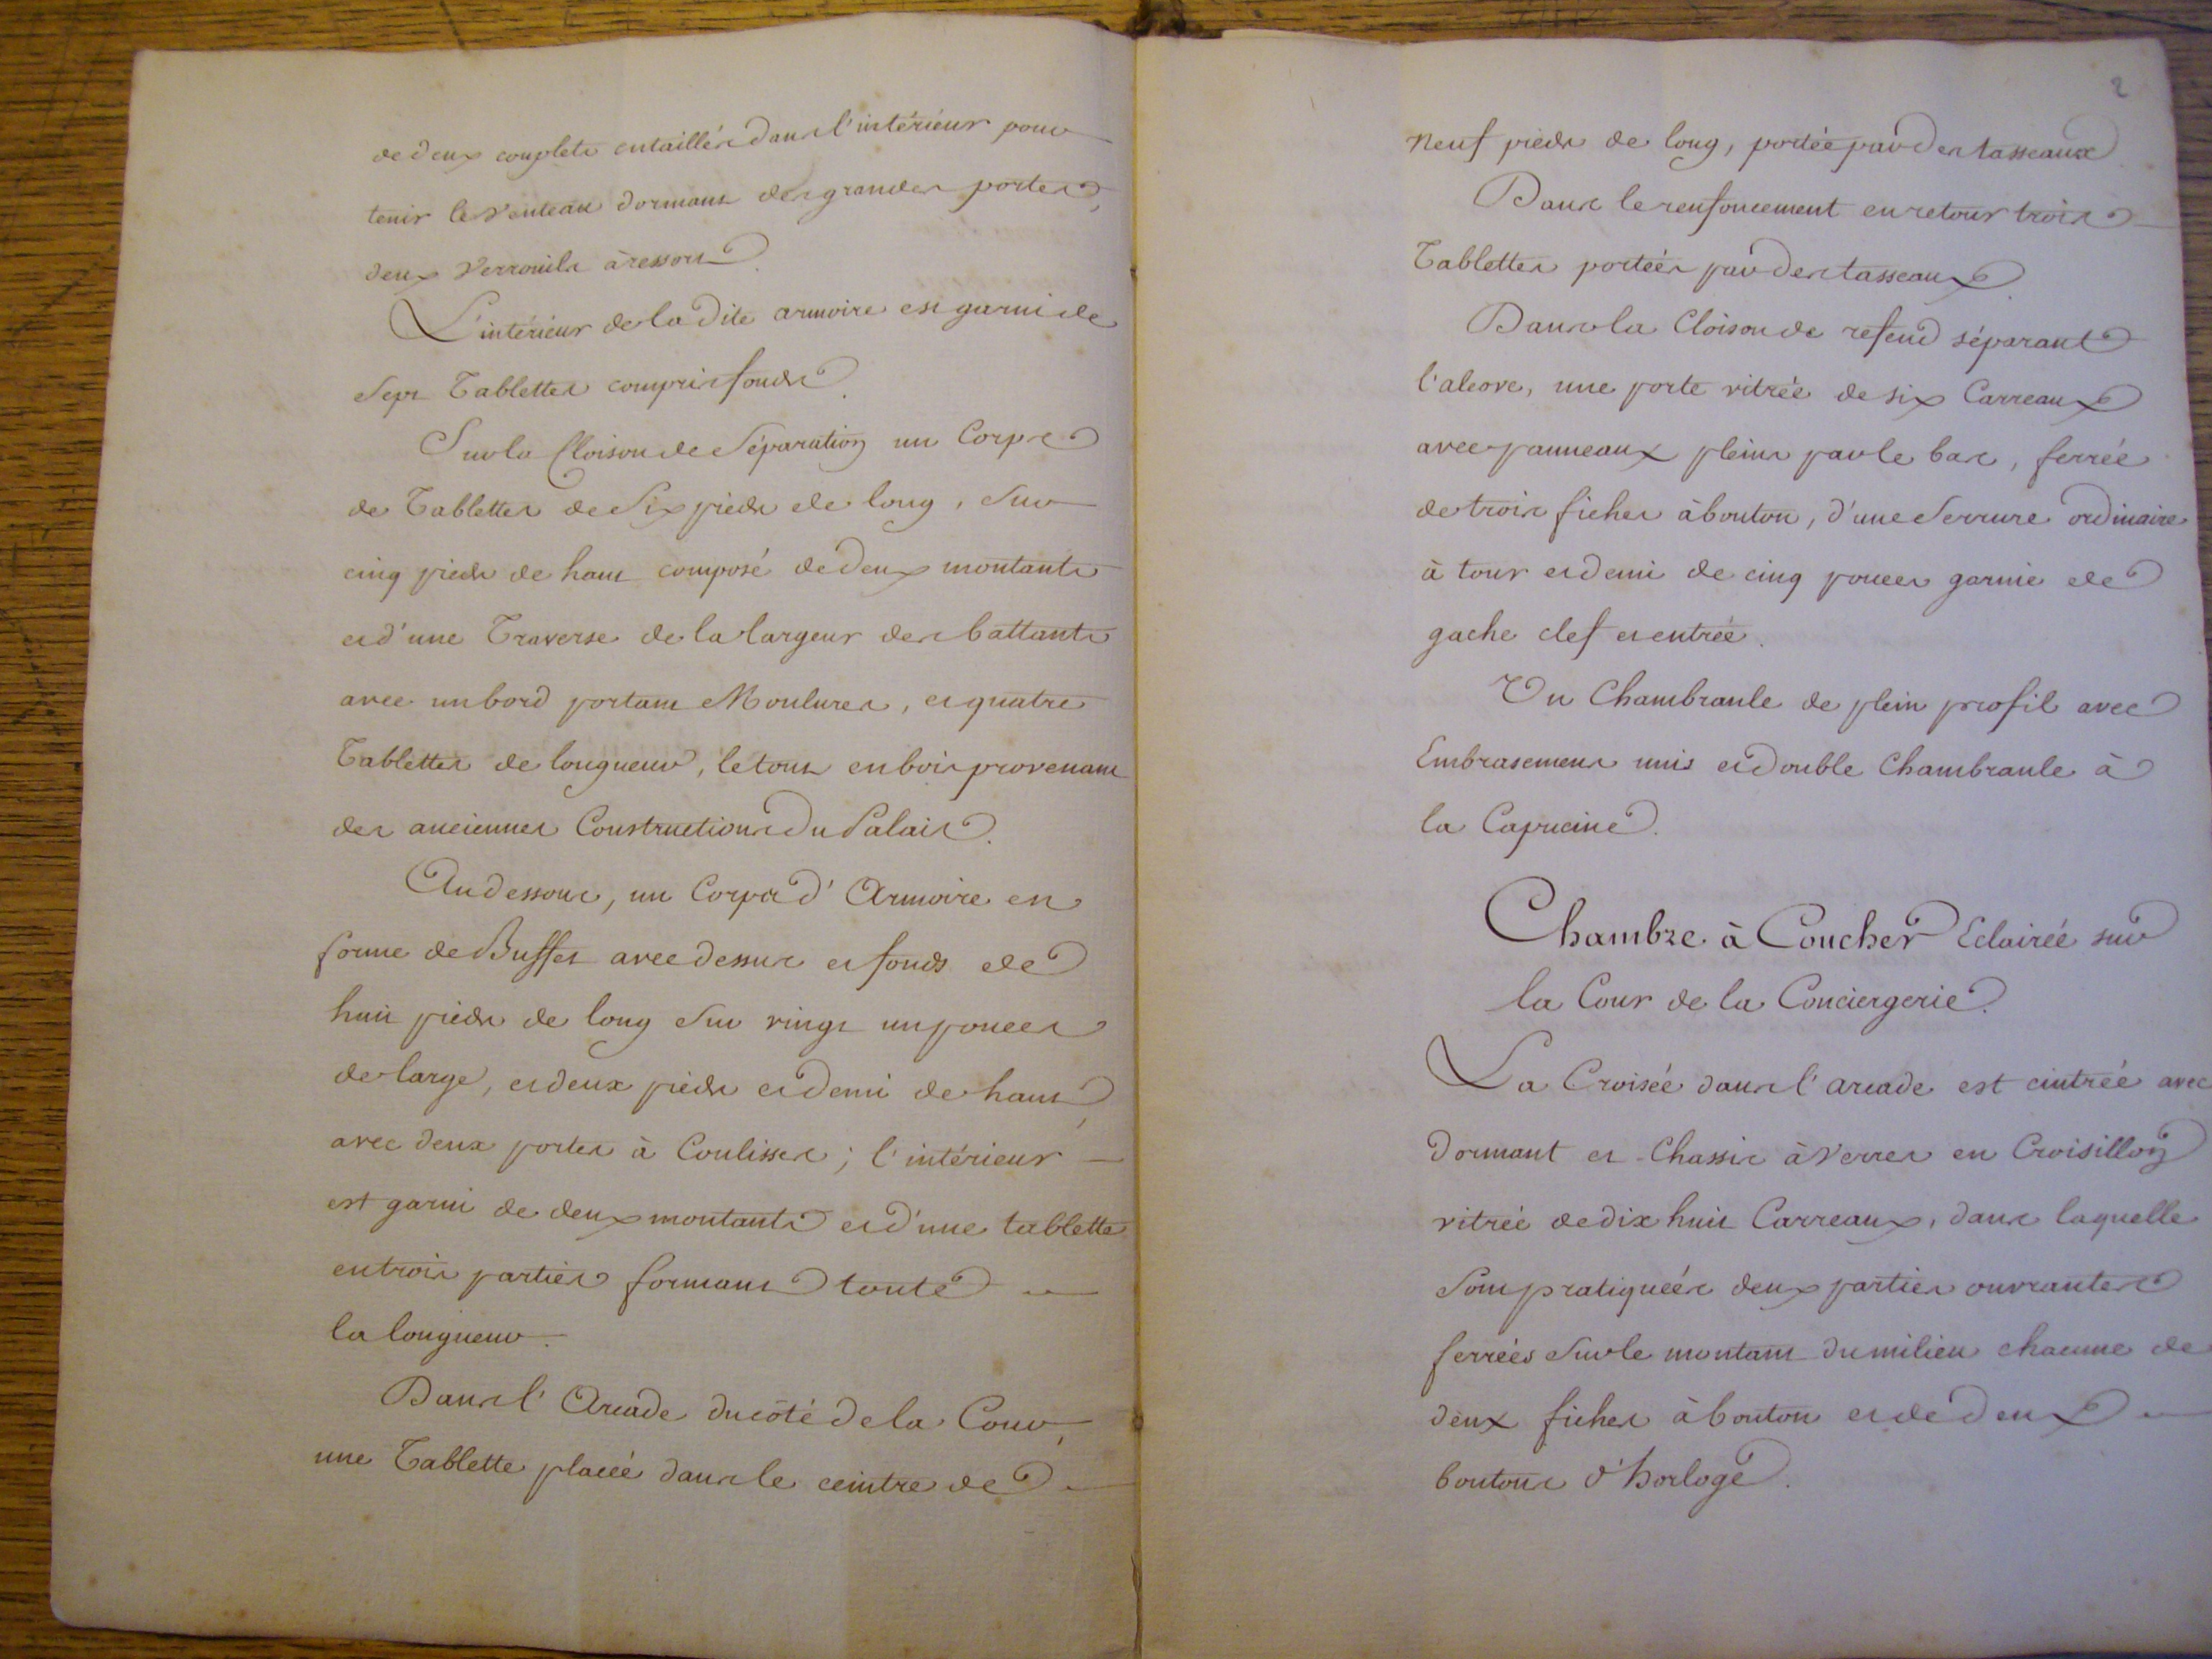 de deux couplets entaillés dans l'intérieur pour
tenir le venteau dormant des grandes portes,
deux verrouils à ressort.
L'intérieur de la dite armoire est garni de
Sept Tablettes compris fonds.
Sur la Cloison de Séparation un Corps
de Tablettes de Six pieds de long, Sur
cinq pieds de haut composé de deux montants
et d'une Traverse de la largeur des battants
avec un bord portant Moulures, et quatre
Tablettes de longueur, le tout en bois provenant
des anciennes Constructions du Palais.
Au dessous, un Corps d'Armoire en
forme de Buffet avec dessus et fonds de
huit pieds de long Sur vingt un pouces
de large, et deux pieds et demi de haut,
avec deux portes à Coulisses ; l'intérieur
est garni de deux montants et d'une tablette
en trois parties formant toute
la longueur.
Dans l'Arcade du côté de la Cour,
une Tablette placée dans le ceintre de
2
neuf pieds de long, portée par des tasseaux
Dans le renfoncement en retour trois
Tablettes portées par des tasseaux.
Dans la Cloison de refend séparant
l'alcove, une porte vitrée de six Carreaux
avec panneaux pleins par le bas, ferrée
de trois fiches à bouton, d'une Serrure ordinaire
à tour et demi de cinq pouces garnie de
gache clef et entrée.
Un Chambranle de plein profil avec
Embrasement unis et double Chambranle à
la Capucine.
Chambre à Coucher Eclairée sur
la Cour de la Conciergerie.
La Croisée dans l'arcade est cintrée avec
dormant et Chassis à Verres en Croisillon
vitrée de dix huit Carreaux, dans laquelle
Sont pratiquées deux parties ouvrantes
ferrées Sur le montant du milieu chacune de
deux fiches à bouton et de deux
boutons d'horloge.